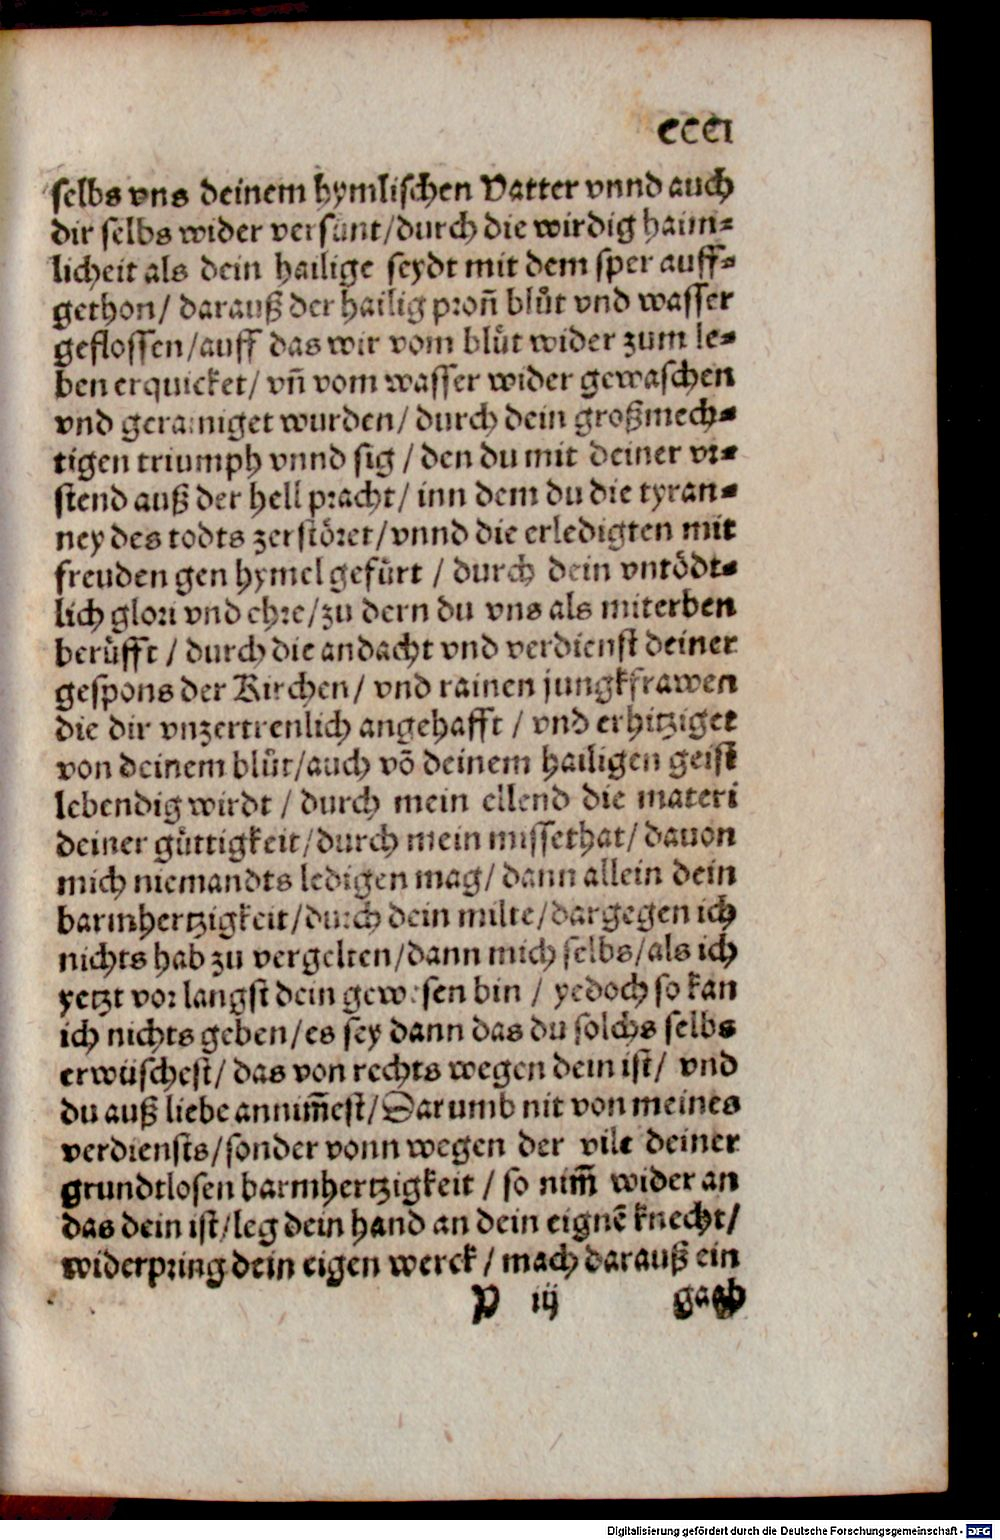 ccci
selbs vns deinem hymlischen Vatter vnnd auch
dir selbs wider versünt/durch die wirdig haim⸗
licheit als dein hailige seydt mit dem sper auff⸗
gethon/ darauß der hailig pron̄ blůt vnd wasser
geflossen/auff das wir vom blůt wider zum le⸗
ben erquicket/ vn̄ vom wasser wider gewaschen
vnd gerainiget wurden/ durch dein großmech⸗
tigen triumph vnnd sig / den du mit deiner vr⸗
stend auß der hell pracht/ inn dem du die tyran⸗
ney des todts zerstöret/vnnd die erledigten mit
freuden gen hymel gefürt / durch dein vntödt⸗
lich glori vnd ehre/zu dern du vns als miterben
berüfft / durch die andacht vnd verdienst deiner
gespons der Kirchen/ vnd rainen jungkfrawen
die dir vnzertrenlich angehafft / vnd erhitziget
von deinem blůt/auch vō deinem hailigen geist
lebendig wirdt / durch mein ellend die materi
deiner güttigkeit/durch mein missethat/ dauon
mich niemandts ledigen mag/ dann allein dein
barmhertzigkeit/durch dein milte/dargegen ich
nichts hab zu vergelten/dann mich selbs/als ich
yetzt vor langst dein gewesen bin / yedoch so kan
ich nichts geben/es sey dann das du solchs selbs
erwüschest/ das von rechts wegen dein ist/ vnd
du auß liebe annim̄est/Darumb nit von meines
verdiensts/sonder vonn wegen der vile deiner
grundtlosen barmhertzigkeit / so nim̄ wider an
das dein ist/leg dein hand an dein eignē knecht/
widerpring dein eigen werck / mach darauß ein
P iij gaab
Digitalisierung gefördert durch die Deutsche Forschungsgemeinschaft - DFG